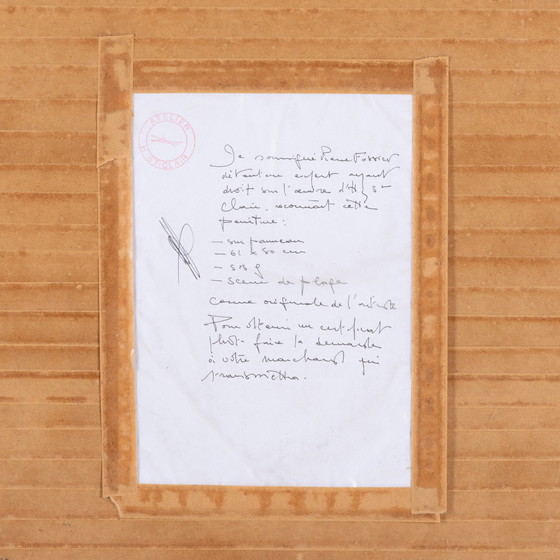 ATELIER
H. ST-CLAIR
Je soussigné Pierre
détenteur expert ayant
droit sur l'œuvre d'H St
Clair, reconnaît cette
peinture :
– sur panneau
– 61 x 50 cm
– sbg
– scène de plage
comme originale de l'artiste
Pour obtenir un certificat
photo faire la demande
à votre marchand qui
transmettra.